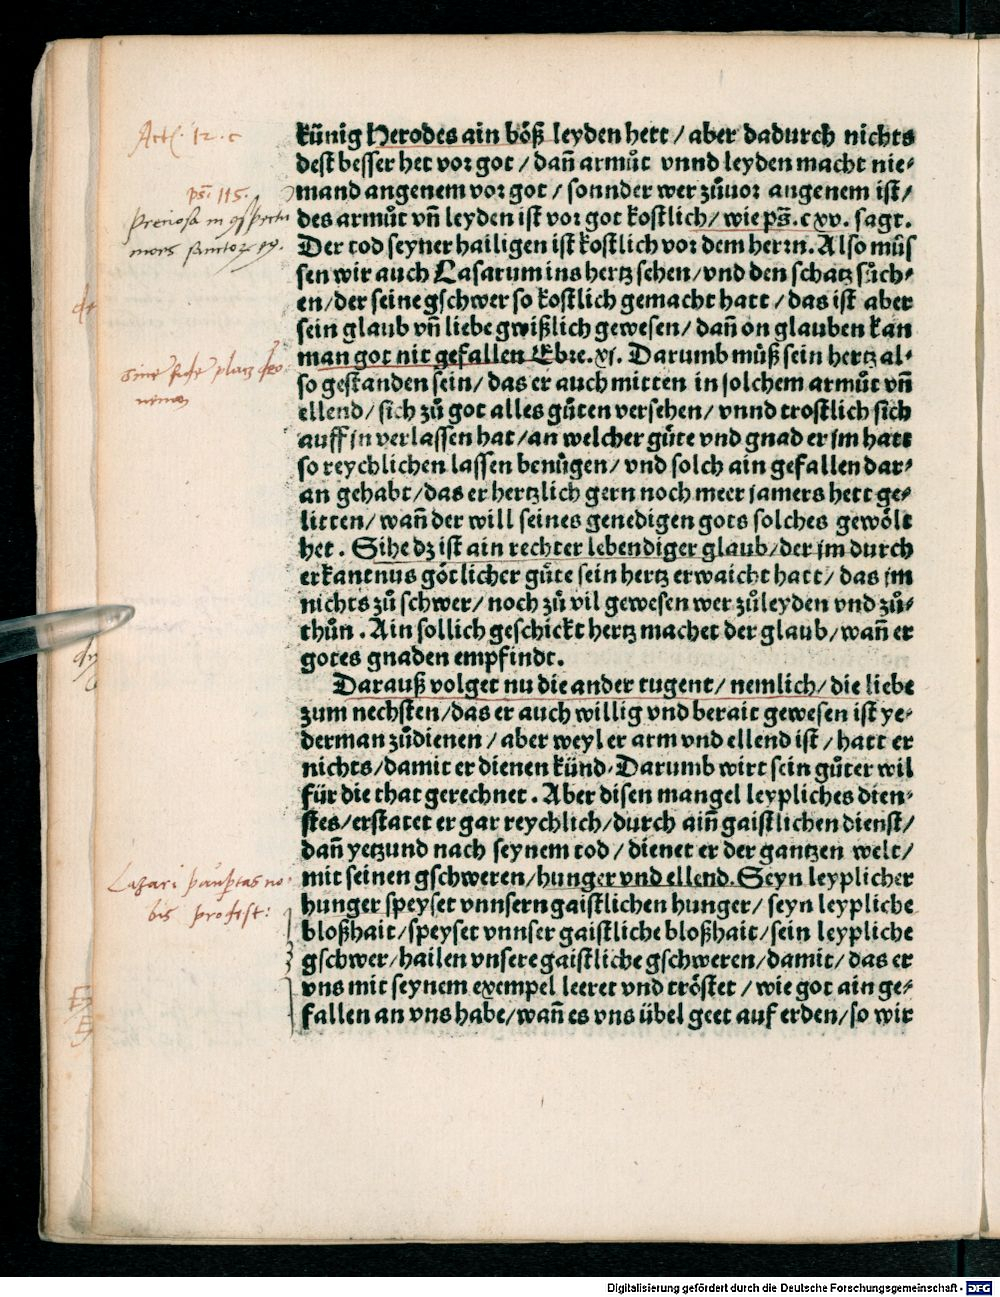 Act. 12. c
ps. 115.
mors sanctorum
Lazari paupertas no-
bis prodest:
künig Herodes ain böß leyden hett / aber dadurch nichts
dest besser het vor got / dañ armůt vnnd leyden macht nie-
mand angenem vor got / sonnder wer zůuor angenem ist /
des armůt vñ leyden ist vor got kostlich / wie ps̄. cxv. sagt.
Der tod seyner hailigen ist kostlich vor dem herrn. Also můs
sen wir auch Lasarum ins hertz sehen / vnd den schatz sůch-
en / der seine gschwer so kostlich gemacht hatt / das ist aber
sein glaub vñ liebe gwißlich gewesen / dañ on glauben kan
man got nit gefallen Ebre. xj. Darumb můß sein hertz al-
so gestanden sein / das er auch mitten in solchem armůt vñ
ellend / sich zů got alles gůten versehen / vnnd trostlich sich
auff jn verlassen hat / an welcher gůte vnd gnad er jm hatt
so reychlichen lassen benůgen / vnd solch ain gefallen dar-
an gehabt / das er hertzlich gern noch meer jamers hett ge-
litten / wañ der will seines genedigen gots solches gewölt
het. Sihe dz ist ain rechter lebendiger glaub / der jm durch
erkantnus götlicher gůte sein hertz erwaicht hatt / das jm
nichts zů schwer / noch zů vil gewesen wer zůleyden vnd zů-
thůn. Ain sollich geschickt hertz machet der glaub / wañ er
gotes gnaden empfindt.
Darauß volget nu die ander tugent / nemlich / die liebe
zum nechsten / das er auch willig vnd berait gewesen ist ye-
derman zůdienen / aber weyl er arm vnd ellend ist / hatt er
nichts / damit er dienen künd. Darumb wirt sein gůter wil
für die that gerechnet. Aber disen mangel leypliches dien-
stes / erstatet er gar reychlich / durch aiñ gaistlichen dienst /
dañ yetzund nach seynem tod / dienet er der gantzen welt /
mit seinen gschweren / hunger vnd ellend. Seyn leyplicher
hunger speyset vnnsern gaistlichen hunger / seyn leypliche
bloßhait / speyset vnnser gaistliche bloßhait / sein leypliche
gschwer / hailen vnsere gaistliche gschweren / damit / das er
vns mit seynem exempel leeret vnd tröstet / wie got ain ge-
fallen an vns habe / wañ es vns übel geet auf erden / so wir
Digitalisierung gefördert durch die Deutsche Forschungsgemeinschaft - DFG